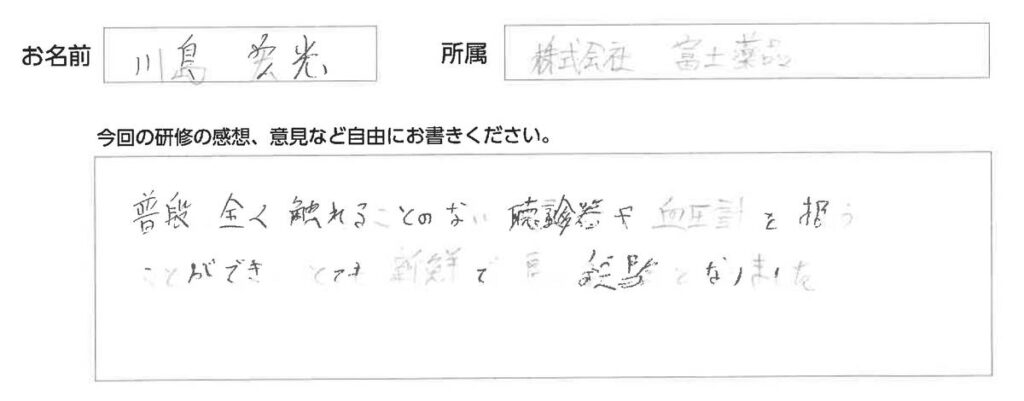 お名前 川島 宏光
所属 株式会社 富士薬品
今回の研修の感想、意見など自由にお書きください。
普段 全く触れることのない 聴診器や血圧計を扱う
ことができ とても新鮮で 良 経験となりました